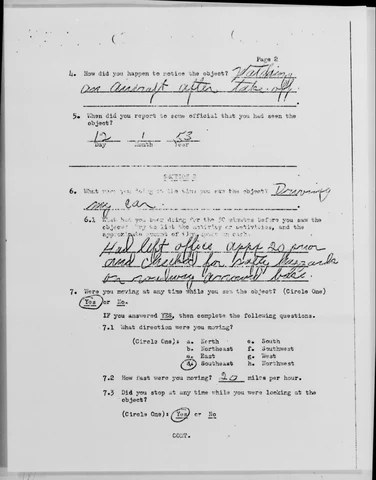 Page 2
4. How did you happen to notice the object? Watching
an aircraft after take-off.
5. When did you report to some official that you had seen the
object?
12 1 53
Day Month Year
SECTION B
6. What were you doing at the time you saw the object? Driving
my car.
6.1 What had you been doing for the 30 minutes before you saw the
object? Try to list the activity or activities, and the
approximate amount of time spent in each.
Had left office appx 20 prior
and checked for safety hazards
on runway
7. Were you moving at any time while you saw the object? (Circle One)
Yes or No.
IF you answered YES, then complete the following questions.
7.1 What direction were you moving?
(Circle One): a. North e. South
b. Northeast f. Southwest
c. East g. West
d. Southeast h. Northwest
7.2 How fast were you moving? 20 miles per hour.
7.3 Did you stop at any time while you were looking at the
object?
(Circle One): Yes or No
CONT.